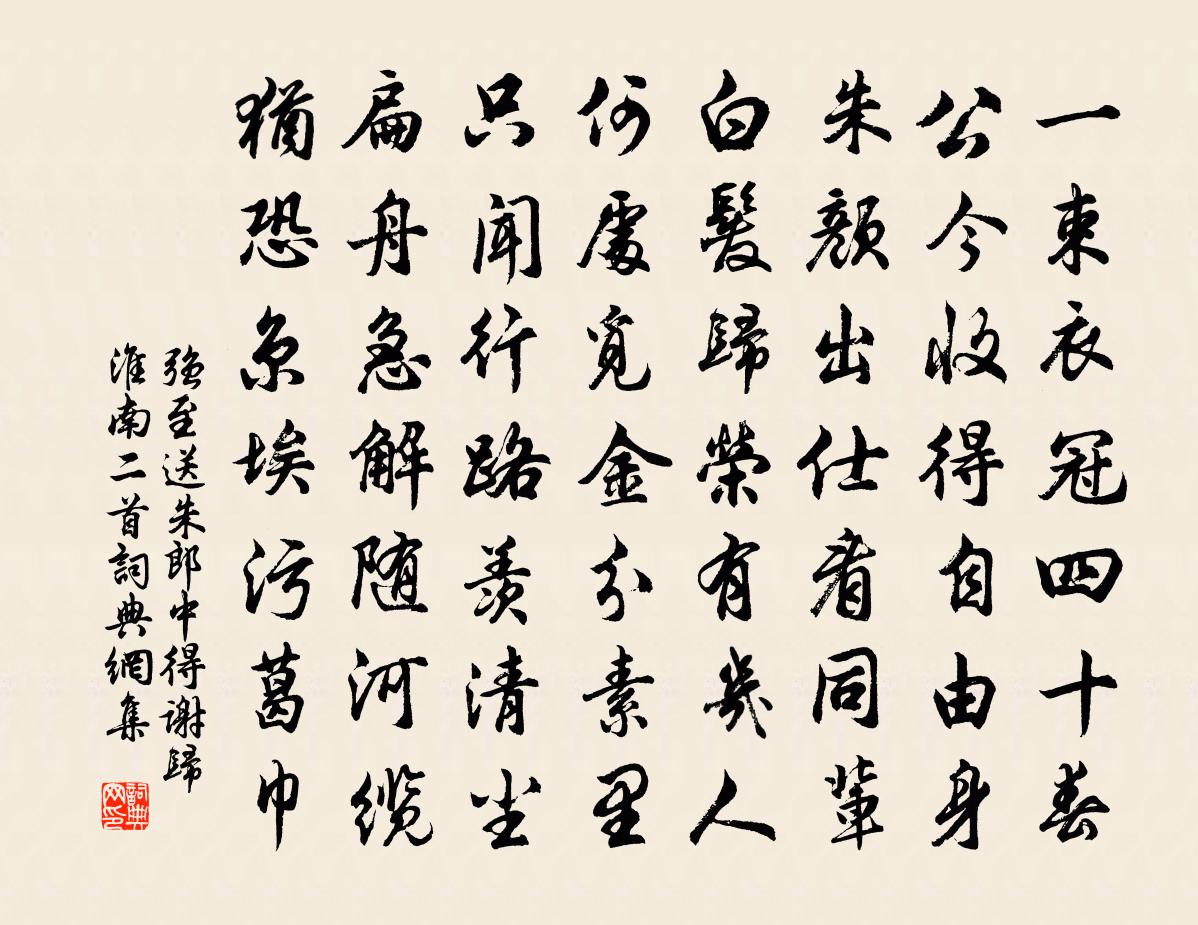 一束衣冠四十春
公今收得自由身
朱顏出仕看同輩
白髮歸榮有幾人
何處覓金分素里
只聞行路羨清塵
扁舟急解随河纜
猶恐京埃污葛巾
強至送朱郎中得謝歸
淮南二首詞典網集
詞典
网印